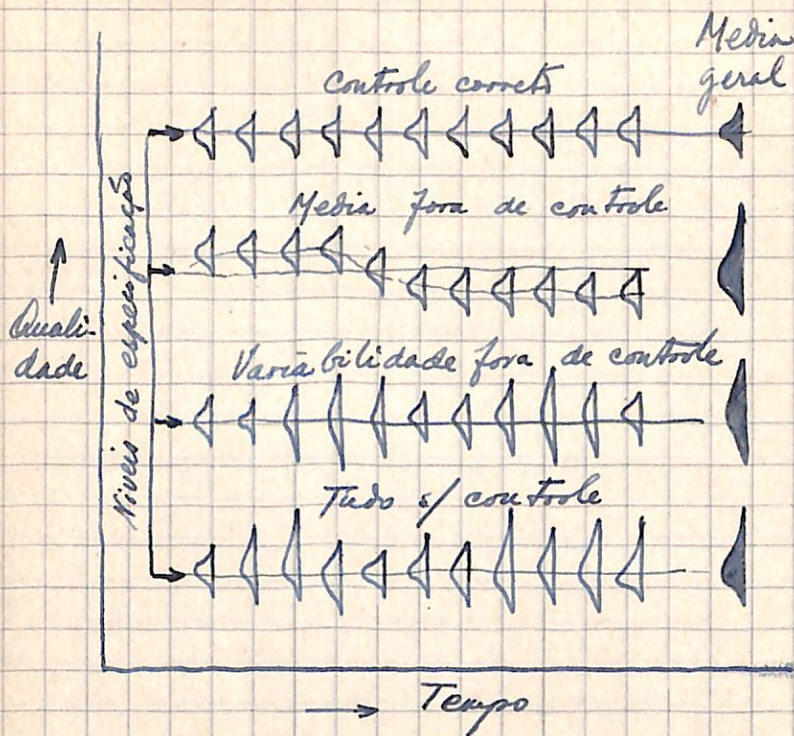 Media
geral
Controle correto
Media fora de controle
Quali-
dade
Niveis de especificação
Variabilidade fora de controle
Tudo s/ controle
Tempo